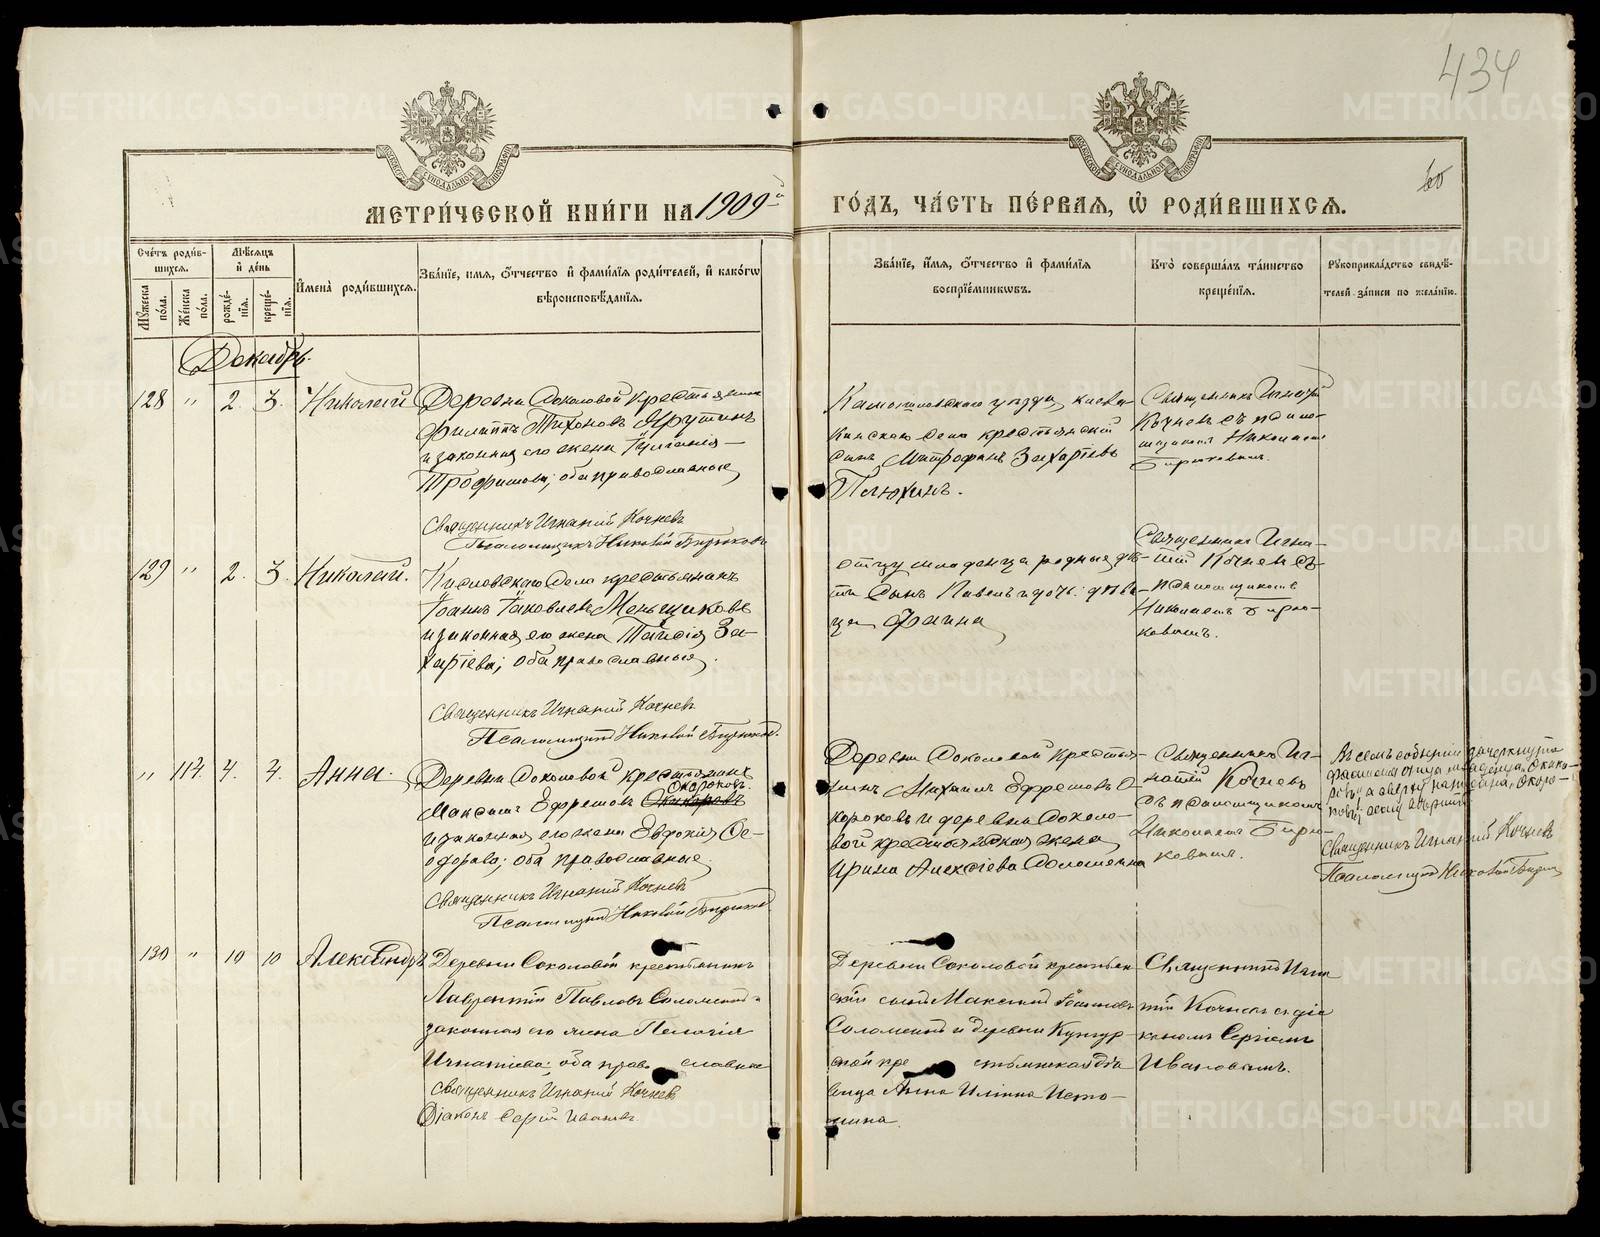 434
60
МЕТРИ́ЧЕСКОЙ КНИ́ГИ НА 1909й ГО́ДЪ, ЧА́СТЬ ПЕ́РВАЯ, Ѡ РОДИ́ВШИХСЯ.
Сче́тъ роди́вшихся.
Му́жеска по́ла.
Же́нска по́ла.
Мѣ́сяцъ и де́нь
рожде́нія.
креще́нія.
Имена̀ роди́вшихся.
Зва́ніе, имя, о́тчество и фами́лія роди́телей, и како́гѡ вѣроисповѣ́данія.
Зва́ніе, и́мя, о́тчество и фами́лія воспріе́мниковъ.
Кто̀ соверша́лъ та́инство креще́нія.
Рукоприкла́дство свидѣ́телей записи по жела́нію.
Декабрь.
128 " 2. 3. Николай
Деревни Соколовой крестьянинъ
Филиппъ Тихоновъ Крутинъ
и законная его жена
Трофимова; оба православные
Священникъ Игнатій Кочневъ
Псаломщикъ Николай Бирюковъ
Камышловскаго уѣзда,
кинскаго села крестьянскій
сынъ Митрофанъ Захаріевъ
Пелюхинъ.
Священникъ Игнатій
Кочневъ съ псаломщикомъ Николаемъ
Бирюковымъ.
129 " 2. 3. Николай.
Кисловскаго села крестьянинъ
Іоаннъ Іаковлевъ Меньщиковъ
и законная его жена Таисія За-
харіева; оба православные.
Священникъ Игнатій Кочневъ
Псаломщикъ Николай Бирюковъ.
отцу младенца родныя дѣ-
ти сынъ Павелъ и дочь дѣви-
ца Фаина
Священникъ Игна-
тій Кочневъ съ
псаломщикомъ
Николаемъ Бирю-
ковымъ.
" 117. 4. 4. Анна.
Деревни Соколовой крестьянинъ
Скороковъ.
Максимъ Ефремовъ
и законная его жена Евдокія Ѳе-
одорова; оба православные.
Священникъ Игнатій Кочневъ
Псаломщикъ Николай Бирюковъ
Деревни Соколовой крестья-
нинъ Михаилъ Ефремовъ С-
короковъ и деревни Соколо-
вой крестьянская жена
Ирина Алексіева Соломеина
Священникъ Иг-
натій Кочневъ
съ псаломщикомъ
Николаемъ Бирю-
ковымъ.
Въ семъ событіи зачеркнута
фамилія отца младенца
а сверху написана „Скоро-
ковъ"
Священникъ Игнатій Кочневъ
Псаломщикъ Николай Бирюковъ
130 " 10 10 Александръ
Деревни Соколовой крестьянинъ
Лаврентій Павловъ Соломеинъ и
законная его жена Пелагія
Игнатіева; оба православные
Священникъ Игнатій Кочневъ
Діаконъ Сергій Ивановъ.
Деревни Соколовой крестьян-
скій сынъ Максимъ
Соломеинъ и деревни Кунгур-
ской крестьянская дѣ-
вица Анна Илiина Исто-
мина.
Священникъ Игна-
тій Кочневъ съ діа-
кономъ Сергіемъ
Ивановымъ.